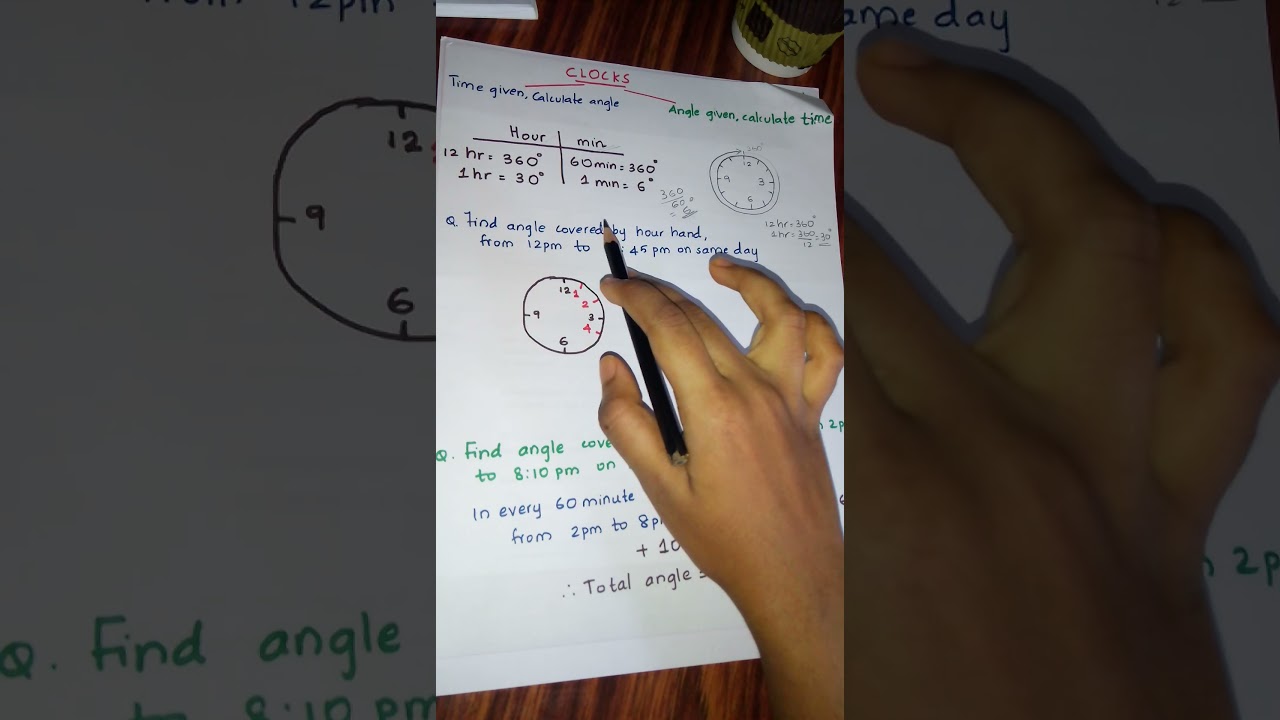 CLOCKS
Time given, Calculate angle
Angle given, calculate time
Hour min
12 hr = 360° 60 min = 360°
1 hr = 30° 1 min = 6°
360
60
= 6
360°
12
9 3
6
12 hr = 360°
1 hr = 360 = 30°
12
Q. Find angle covered by hour hand,
from 12pm to : 45 pm on same day
12 1
2
9 3
4
6
2p
Q. Find angle
to 8:10 pm on
In every 60 minute
from 2pm to 8p
+ 10
∴ Total angle =
same day
12
9
6
2p
Q. Find angle
to 8:10 pm